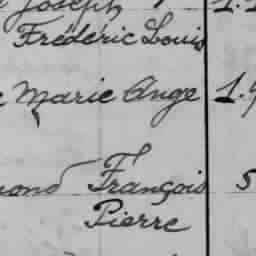 Joseph
Frédéric Louis
Marie Ange 1.
François 5
Pierre